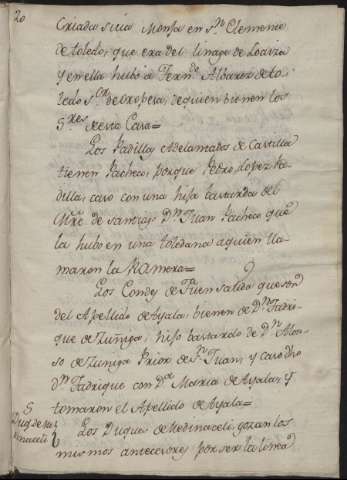 20
Criada suia Monja en Sto Clemente
de toledo, que era del linage de Loarza
y en ella hubo a Ferndo Albarez de to-
ledo Sor de oropesa, de quien bienen los
Sres de esta Casa=
Los Padillas Adelantados de Castilla
tienen Pacheco, porque Pedro Lopez Pa-
dilla, caso con una hija bastarda del
Mre de Santiago Dn Juan Pacheco que
la hubo en una toledana a quien lla-
maron la Ramera=
Los Condes de Fuensalida que son
del Apellido de Ayala, bienen de Dn Fadri-
que de Zuñiga, hijo bastardo de Dn Alon-
so de Zuñiga Prior de Sn Juan, y caso dho
Dn Fadrique con Da Maria de Ayala, y
tomaron el Apellido de Ayala=
Duqs de me-
dinaceli
Los Duques de Medinaceli gozan los
mismos antecesores por ser la linea